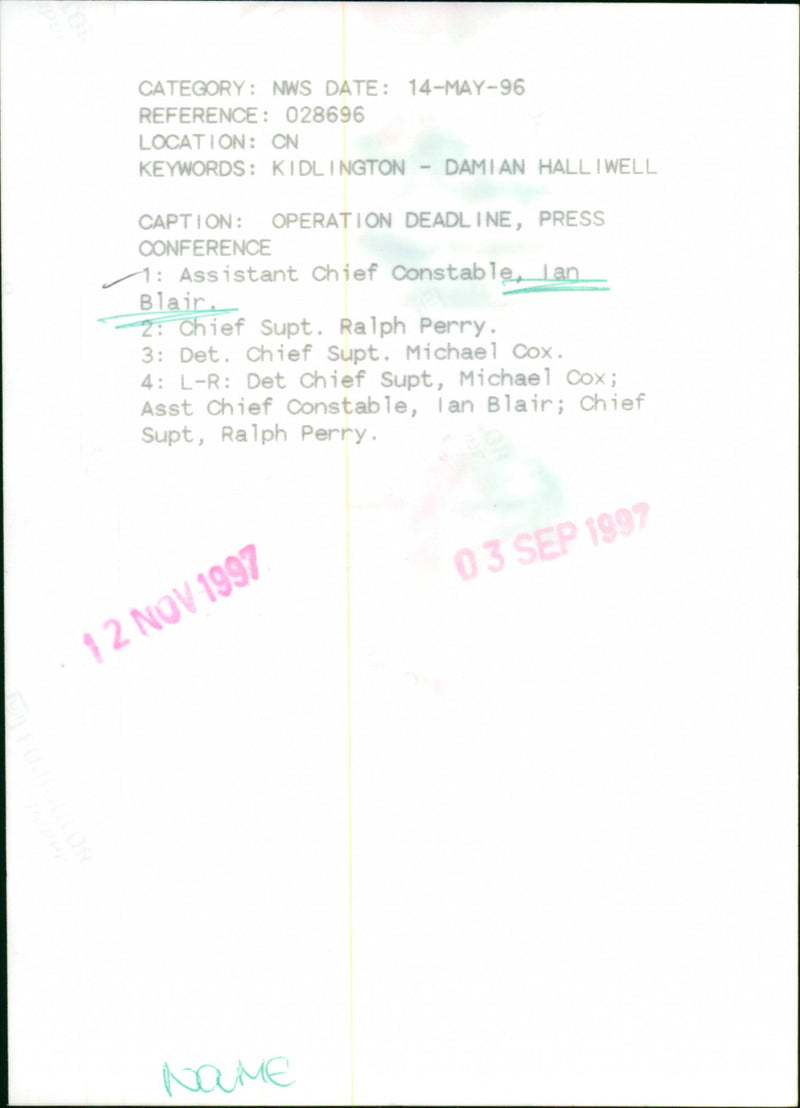 CATEGORY: NWS DATE: 14-MAY-96
REFERENCE: 028696
LOCATION: CN
KEYWORDS: KIDLINGTON - DAMIAN HALLIWELL
CAPTION: OPERATION DEADLINE, PRESS
CONFERENCE
1: Assistant Chief Constable, Ian
Blair.
2: Chief Supt. Ralph Perry.
3: Det. Chief Supt. Michael Cox.
4: L-R: Det Chief Supt, Michael Cox;
Asst Chief Constable, Ian Blair; Chief
Supt, Ralph Perry.
03 SEP 1997
12 NOV 1997
FUJICOLOR
paper
NAME